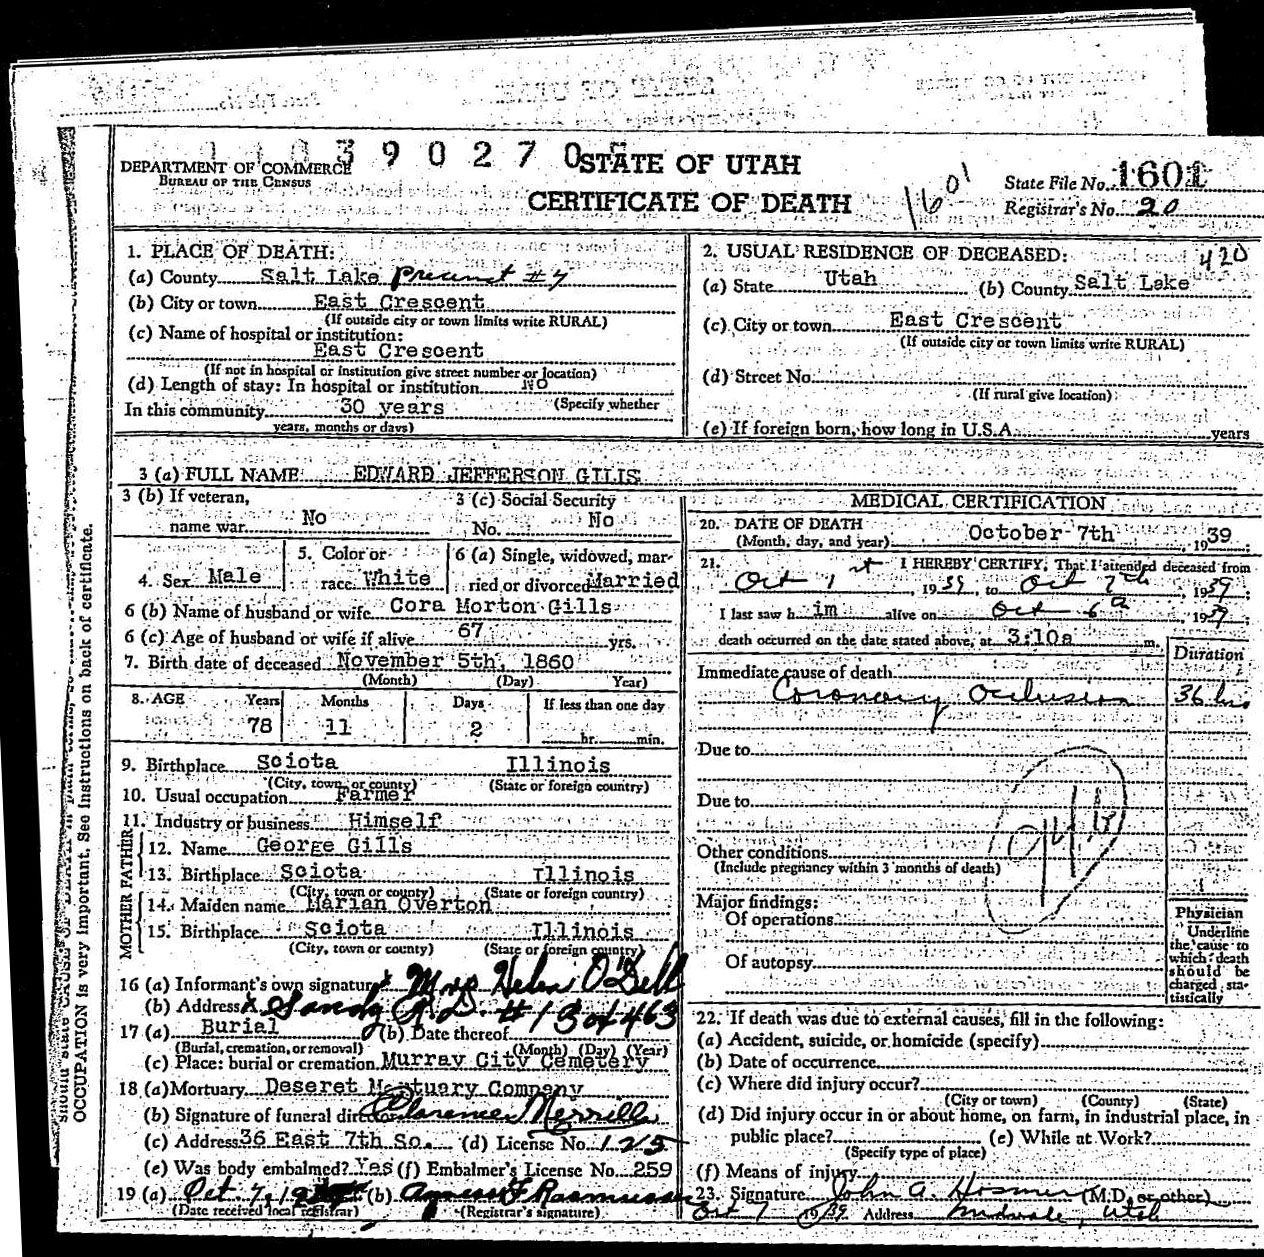 390270 STATE OF UTAH
DEPARTMENT OF COMMERCE
BUREAU OF THE CENSUS
CERTIFICATE OF DEATH
1601
State File No. 1601
Registrar's No. 20
1. PLACE OF DEATH:
(a) County Salt Lake Precinct #7
(b) City or town East Crescent
(If outside city or town limits write RURAL)
(c) Name of hospital or institution:
East Crescent
(If not in hospital or institution give street number or location)
(d) Length of stay: In hospital or institution No
In this community 30 years (Specify whether
years, months or days)
2. USUAL RESIDENCE OF DECEASED: 420
(a) State Utah (b) County Salt Lake
(c) City or town East Crescent
(If outside city or town limits write RURAL)
(d) Street No.
(If rural give location)
(e) If foreign born, how long in U.S.A. years
3 (a) FULL NAME EDWARD JEFFERSON GILLS
3 (b) If veteran, name war No
3 (c) Social Security No. No
4. Sex Male
5. Color or race White
6 (a) Single, widowed, married or divorced Married
6 (b) Name of husband or wife Cora Morton Gills
6 (c) Age of husband or wife if alive 67 yrs.
7. Birth date of deceased November 5th, 1860
(Month) (Day) Year)
8. AGE Years Months Days If less than one day
78 11 2 hr. min.
9. Birthplace Sciota Illinois
(City, town, or county) (State or foreign country)
10. Usual occupation Farmer
11. Industry or business Himself
FATHER
12. Name George Gills
13. Birthplace Sciota Illinois
(City, town or county) (State or foreign country)
MOTHER
14. Maiden name Marian Overton
15. Birthplace Sciota Illinois
(City, town or county) (State or foreign country)
16 (a) Informant's own signature x Mrs Helen O'Dell
(b) Address x Sandy R.D. #1 Box 463
17 (a) Burial (b) Date thereof
(Burial, cremation, or removal) (Month) (Day) (Year)
(c) Place: burial or cremation Murray City Cemetery
18 (a) Mortuary Deseret Mortuary Company
(b) Signature of funeral dir Clarence Merrill
(c) Address 36 East 7th So. (d) License No. 125
(e) Was body embalmed? Yes (f) Embalmer's License No. 259
19 (a) Oct 7, (b) Agnes F Rasmussen
(Date received local registrar) (Registrar's signature)
MEDICAL CERTIFICATION
20. DATE OF DEATH October 7th, 1939
(Month, day, and year)
21. I HEREBY CERTIFY, That I attended deceased from
Oct 1st, 1939, to Oct 7th, 1939;
I last saw h im alive on Oct 6th, 1939;
death occurred on the date stated above, at 3:10a m.
Duration
Immediate cause of death
Coronary Occlusion 36 hrs
Due to
Due to
Other conditions
(Include pregnancy within 3 months of death)
Major findings:
Of operations
Of autopsy
Physician
Underline
the cause to
which death
should be
charged sta-
tistically
22. If death was due to external causes, fill in the following:
(a) Accident, suicide, or homicide (specify)
(b) Date of occurrence
(c) Where did injury occur?
(City or town) (County) (State)
(d) Did injury occur in or about home, on farm, in industrial place, in
public place? (e) While at Work?
(Specify type of place)
(f) Means of injury
23. Signature John A. Hosmer (M.D. or other)
Oct 7 1939 Address Midvale, Utah
OCCUPATION is very important. See instructions on back of certificate.